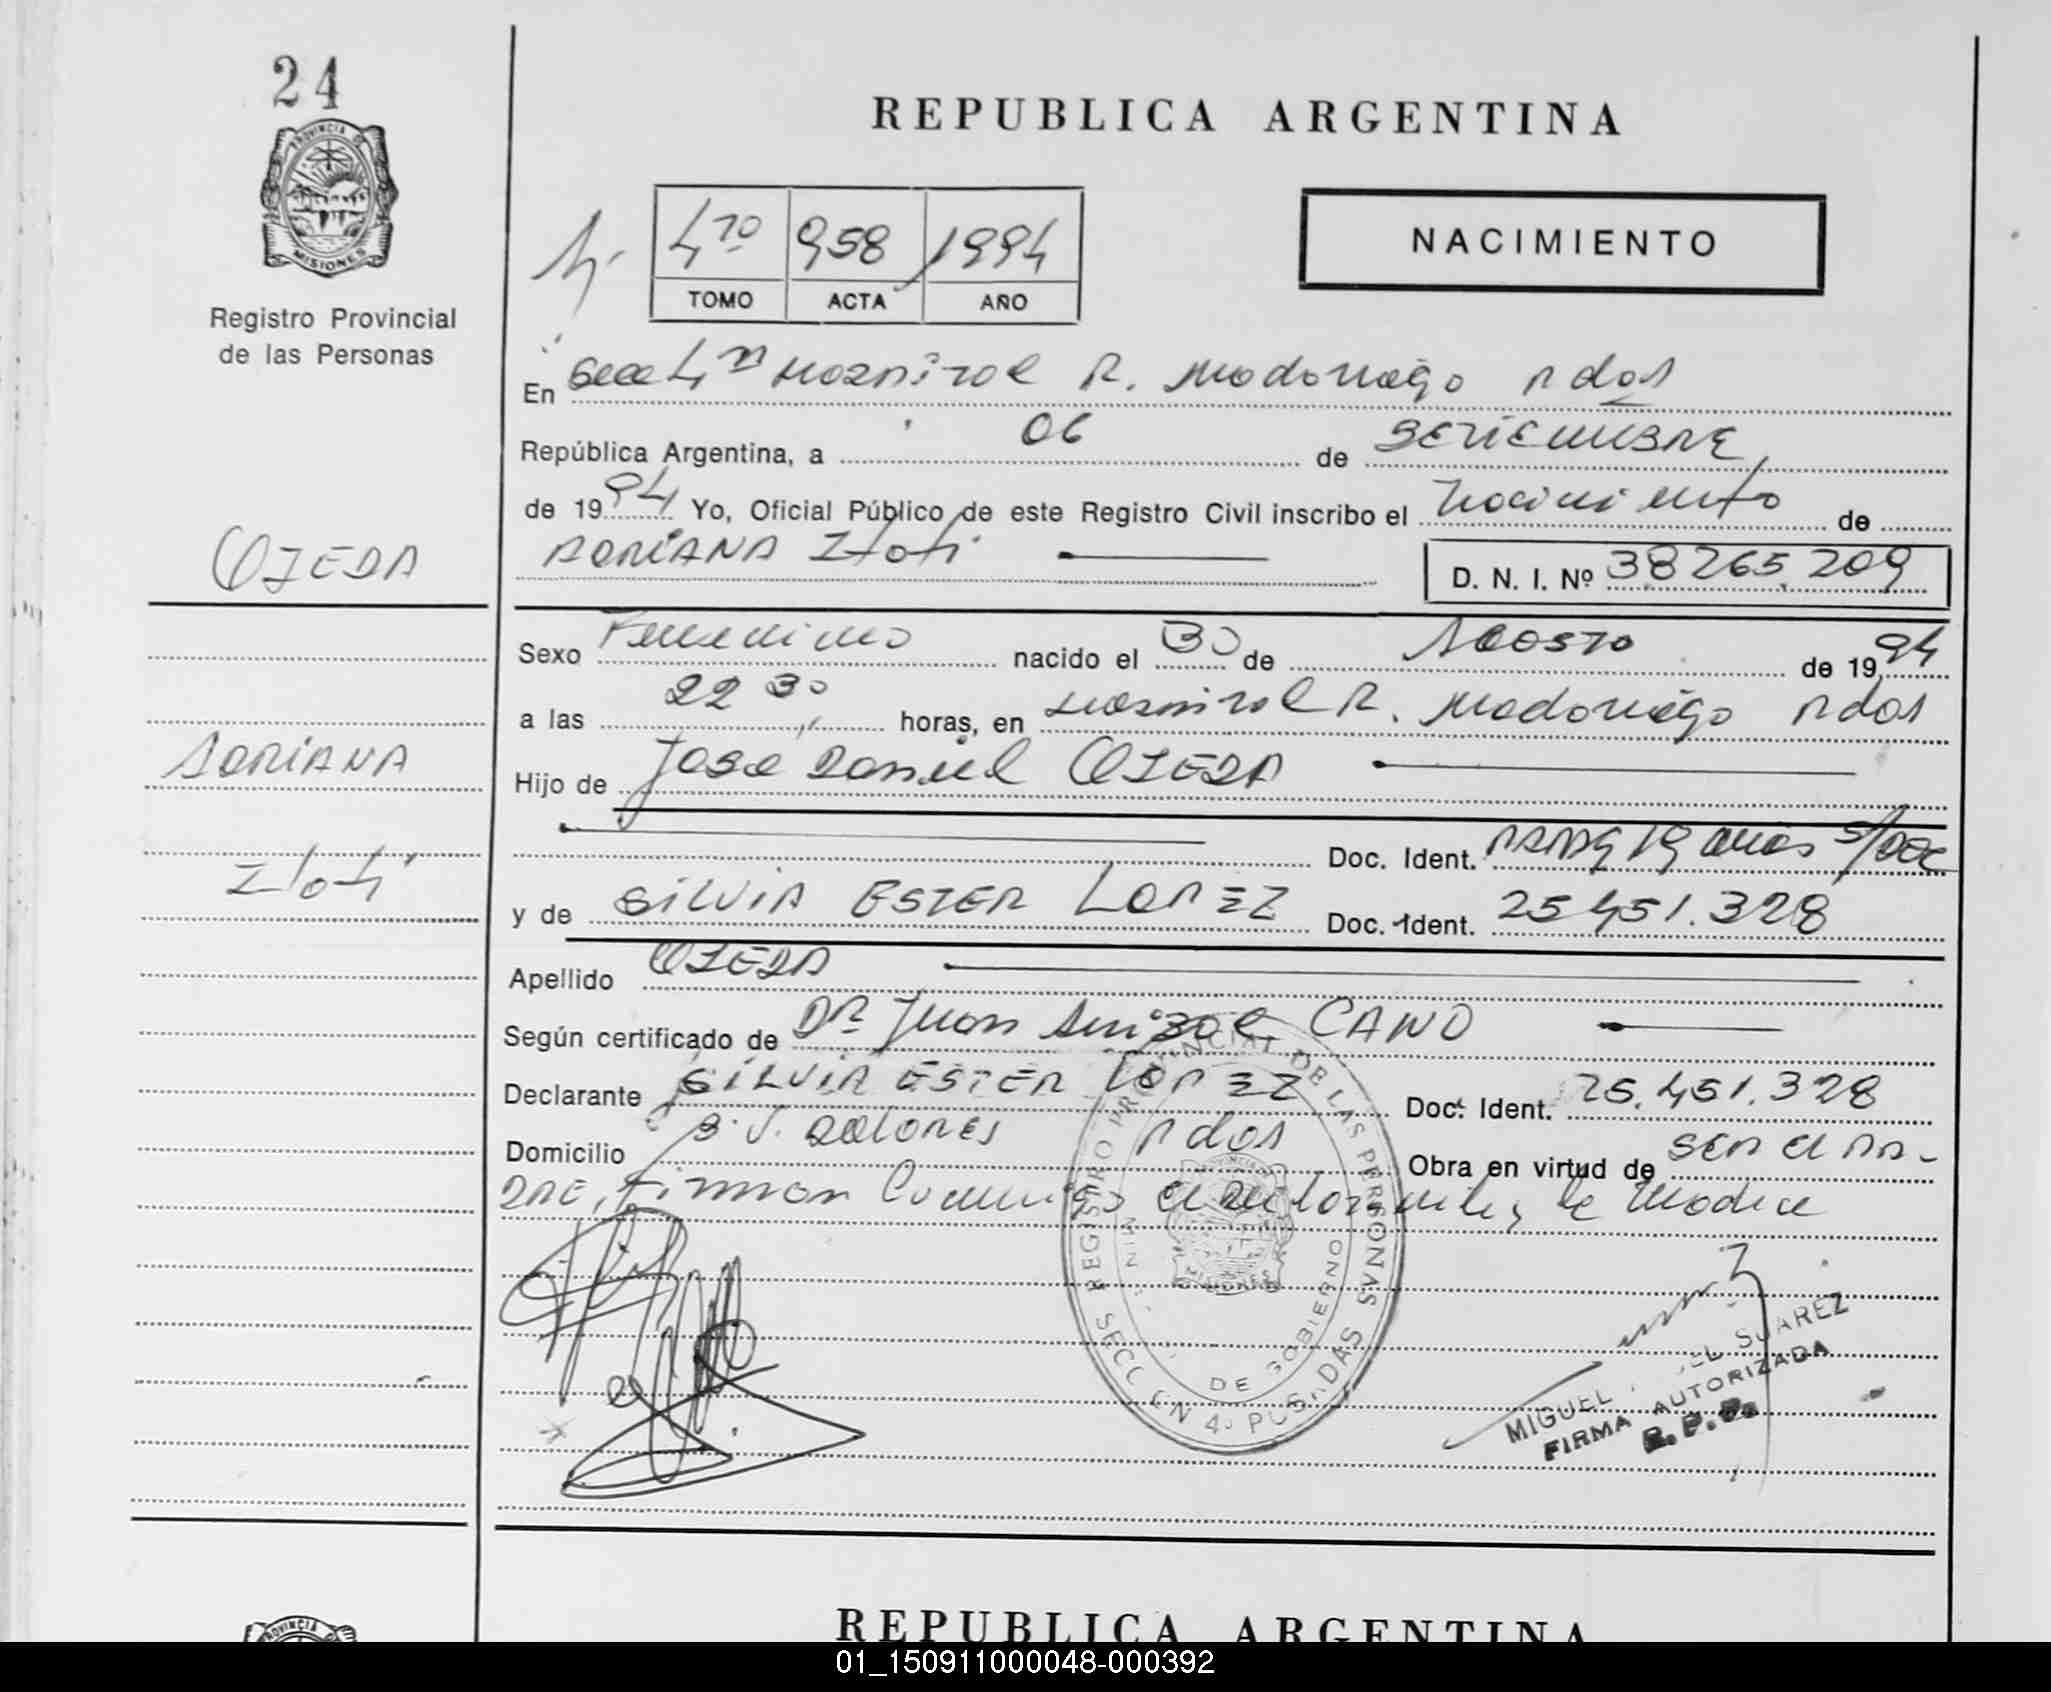 24
PROVINCIA DE
MISIONES
Registro Provincial
de las Personas
REPUBLICA ARGENTINA
4to 958 1994
TOMO ACTA AÑO
NACIMIENTO
En Secc 4ª Hospital R. Madariaga Pdas
República Argentina, a 06 de SETIEMBRE
de 1994 Yo, Oficial Público de este Registro Civil inscribo el Nacimiento de
ADRIANA Itatí D. N. I. Nº 38265209
OJEDA
Sexo Femenino nacido el 30 de AGOSTO de 1994
a las 22 30 horas, en Hospital R. Madariaga Pdas
ADRIANA
Hijo de José Daniel OJEDA
Doc. Ident. PADRE 19 años S/DOC
Itatí
y de SILVIA ESTER LOPEZ Doc. Ident. 25.451.328
Apellido OJEDA
Según certificado de Dr. Juan Anibal CANO
Declarante SILVIA ESTER LOPEZ Doc. Ident. 25.451.328
Domicilio B. V. DOLORES Pdas Obra en virtud de SER EL PA-
DRE, Firman Conmigo el declarante y la Madre
REGISTRO PROVINCIAL DE LAS PERSONAS
DE GOBIERNO
SECCION 4ª POSADAS
MISIONES
MIGUEL SUAREZ
FIRMA AUTORIZADA
R.P.P.
PROVINCIA
REPUBLICA ARGENTINA
01_150911000048-000392